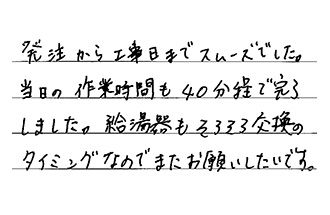 発注から工事日までスムーズでした。
当日の作業時間も40分程で完了
しました。給湯器もそろそろ交換の
タイミングなのでまたお願いしたいです。